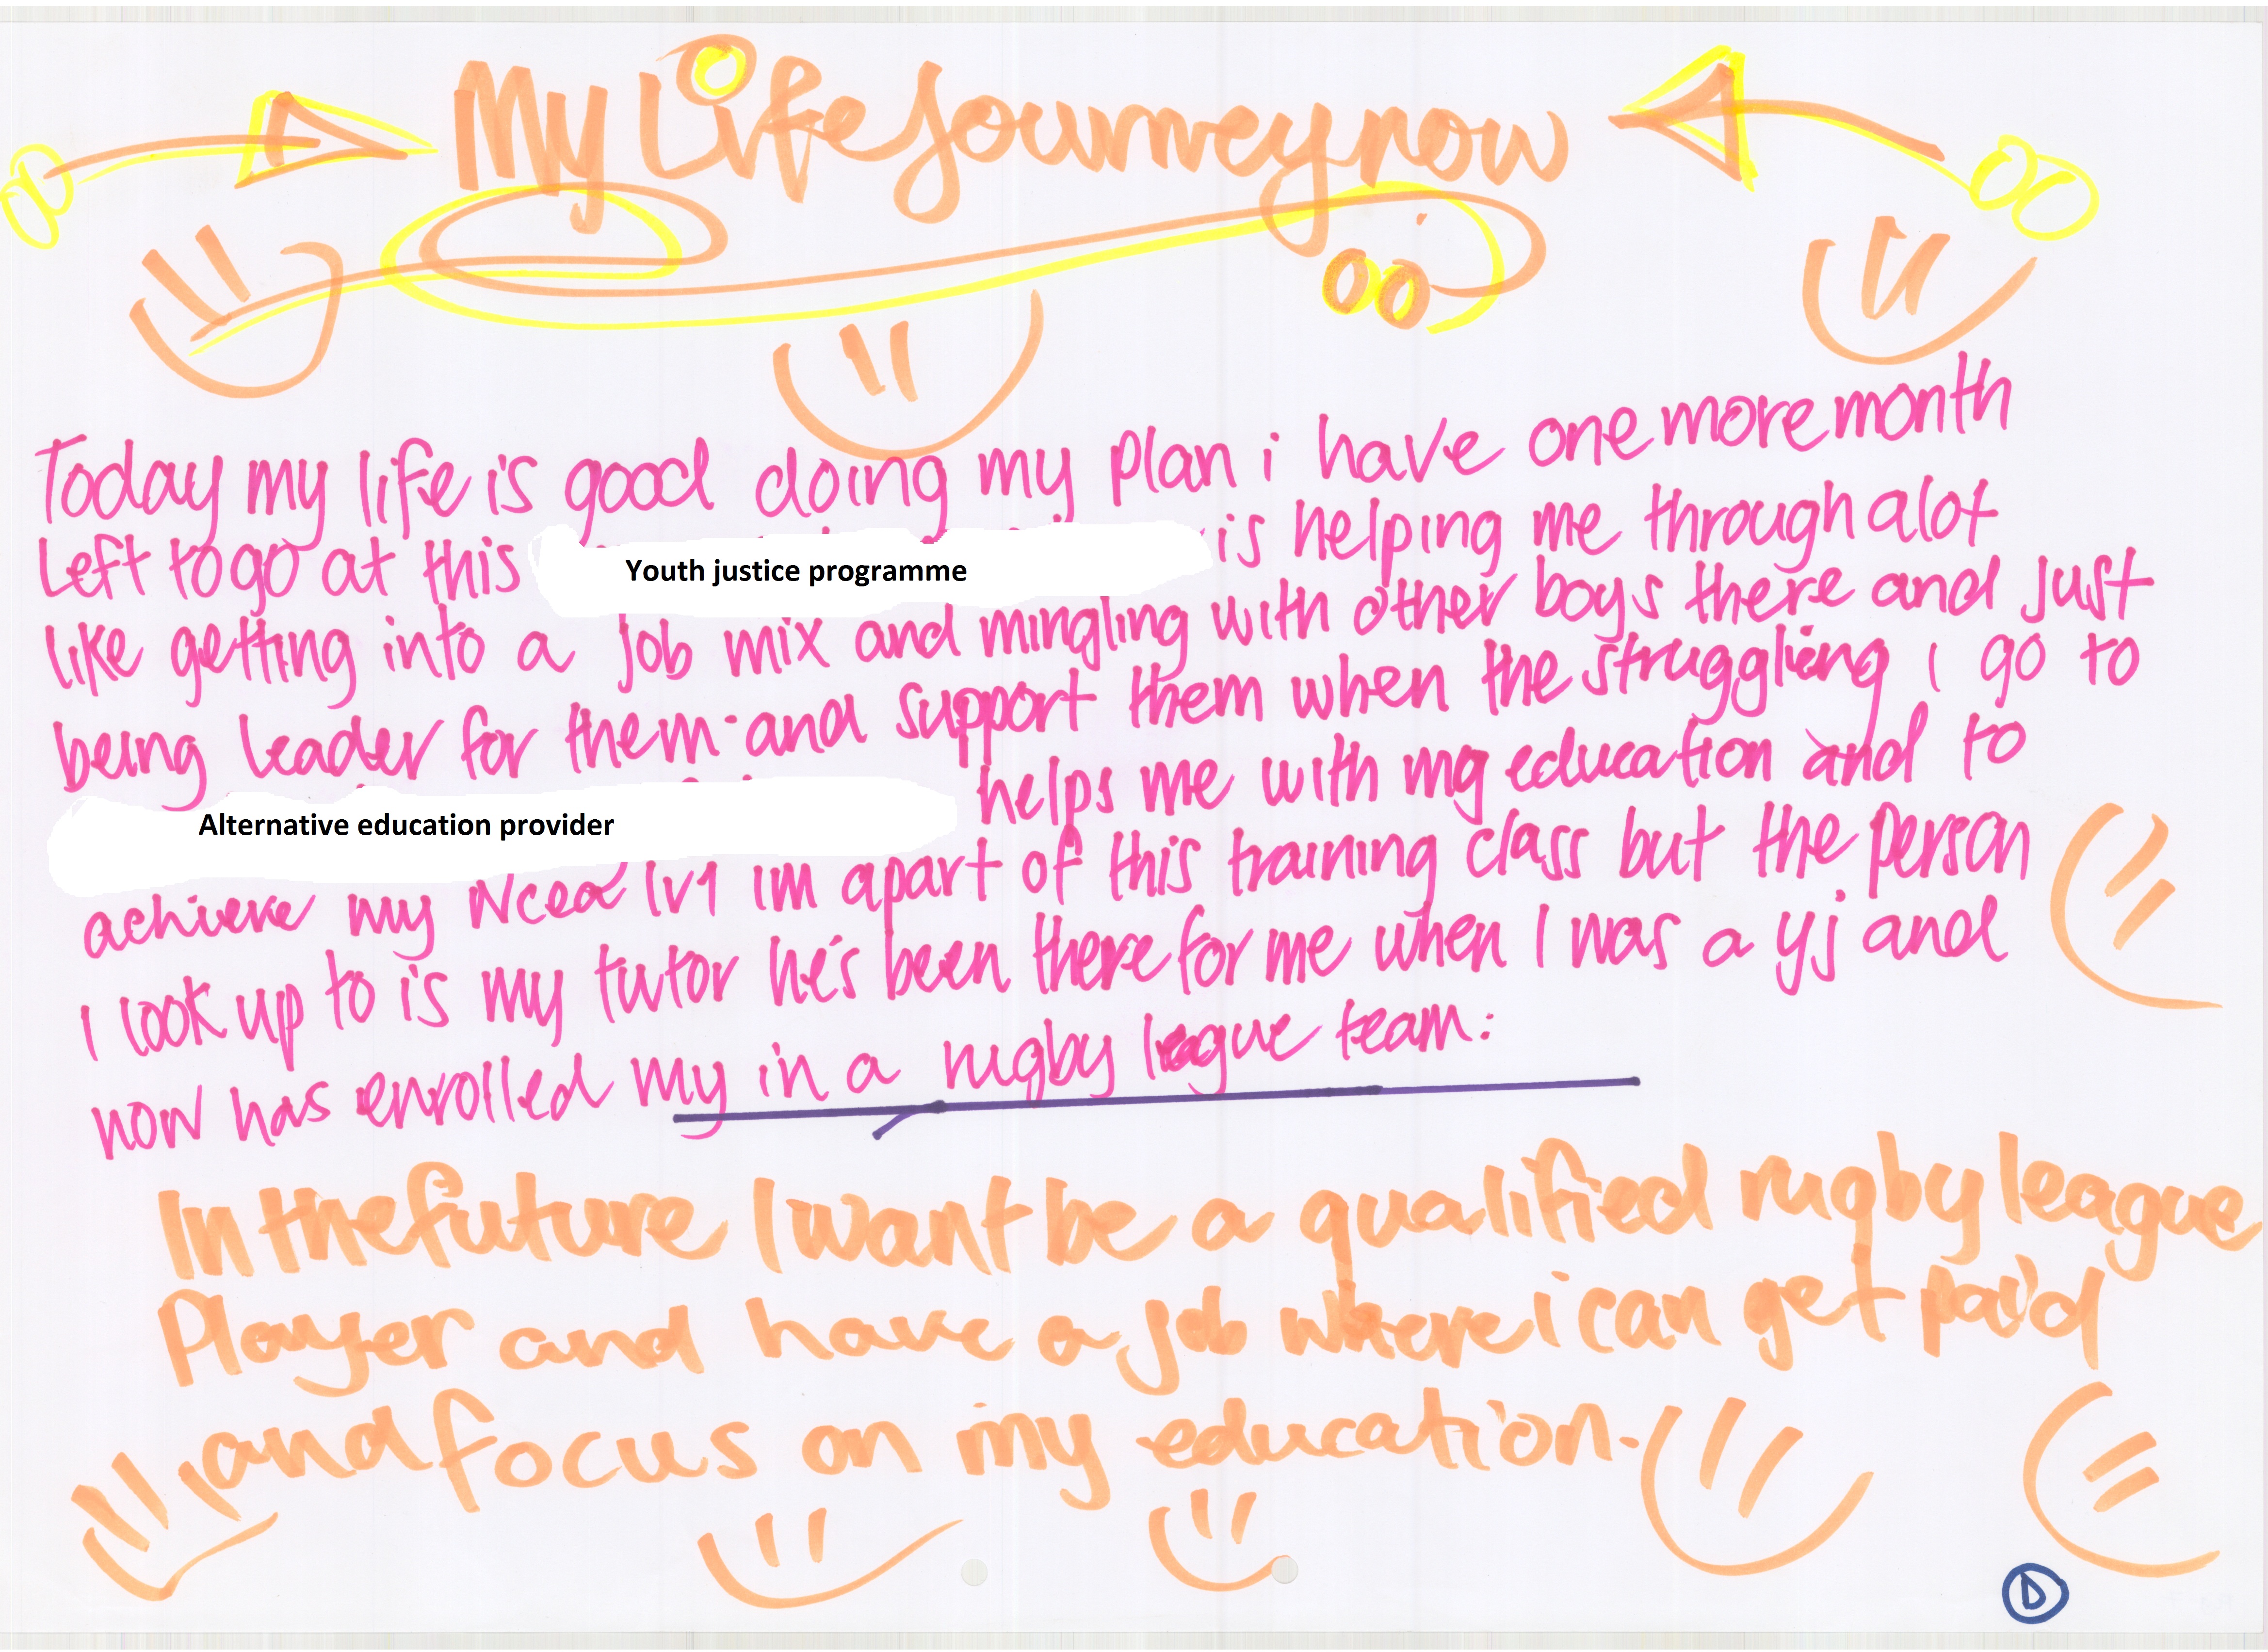 My Life Journey now
Today my life is good doing my plan i have one more month
Left to go at this Youth justice programme is helping me through alot
like getting into a job mix and mingling with other boys there and just
being leader for them and support them when the struggling i go to
Alternative education provider helps me with my education and to
achieve my Ncea lv1 im apart of this training class but the person
I look up to is my tutor he's been there for me when I was a yj and
now has enrolled my in a rugby league team:
In the future I want be a qualified rugby league
Player and have a job where i can get paid
and focus on my education.
D